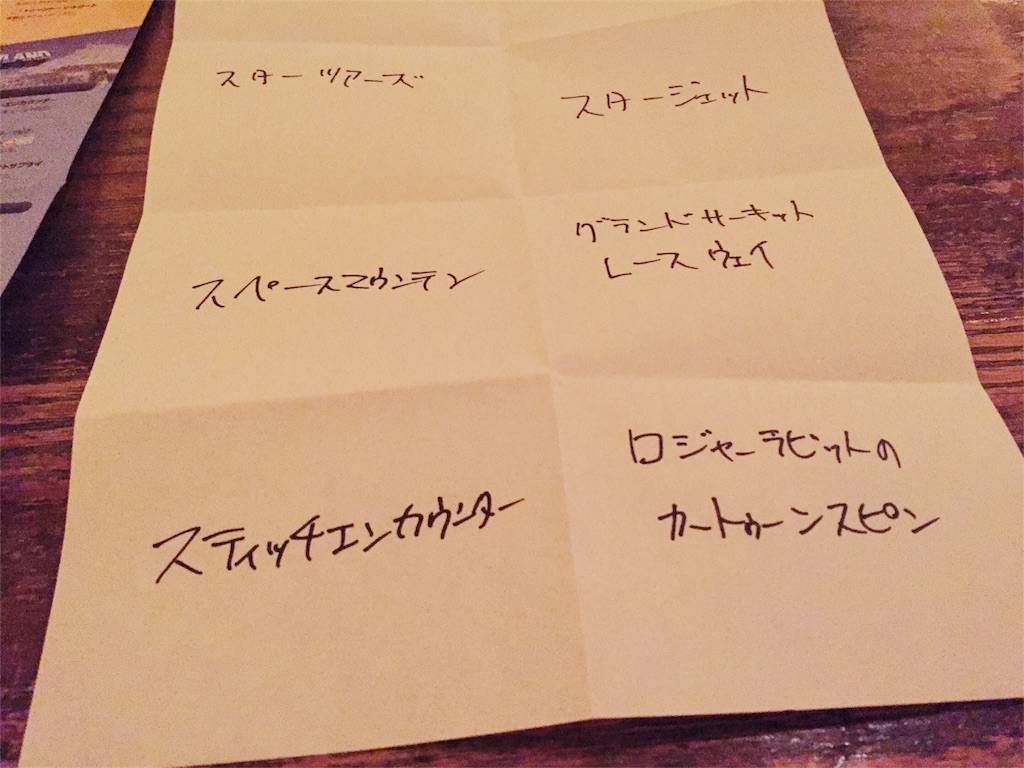 スターツアーズ
スタージェット
スペースマウンテン
グランドサーキット
レースウェイ
スティッチエンカウンター
ロジャーラビットの
カートゥーンスピン
LAND